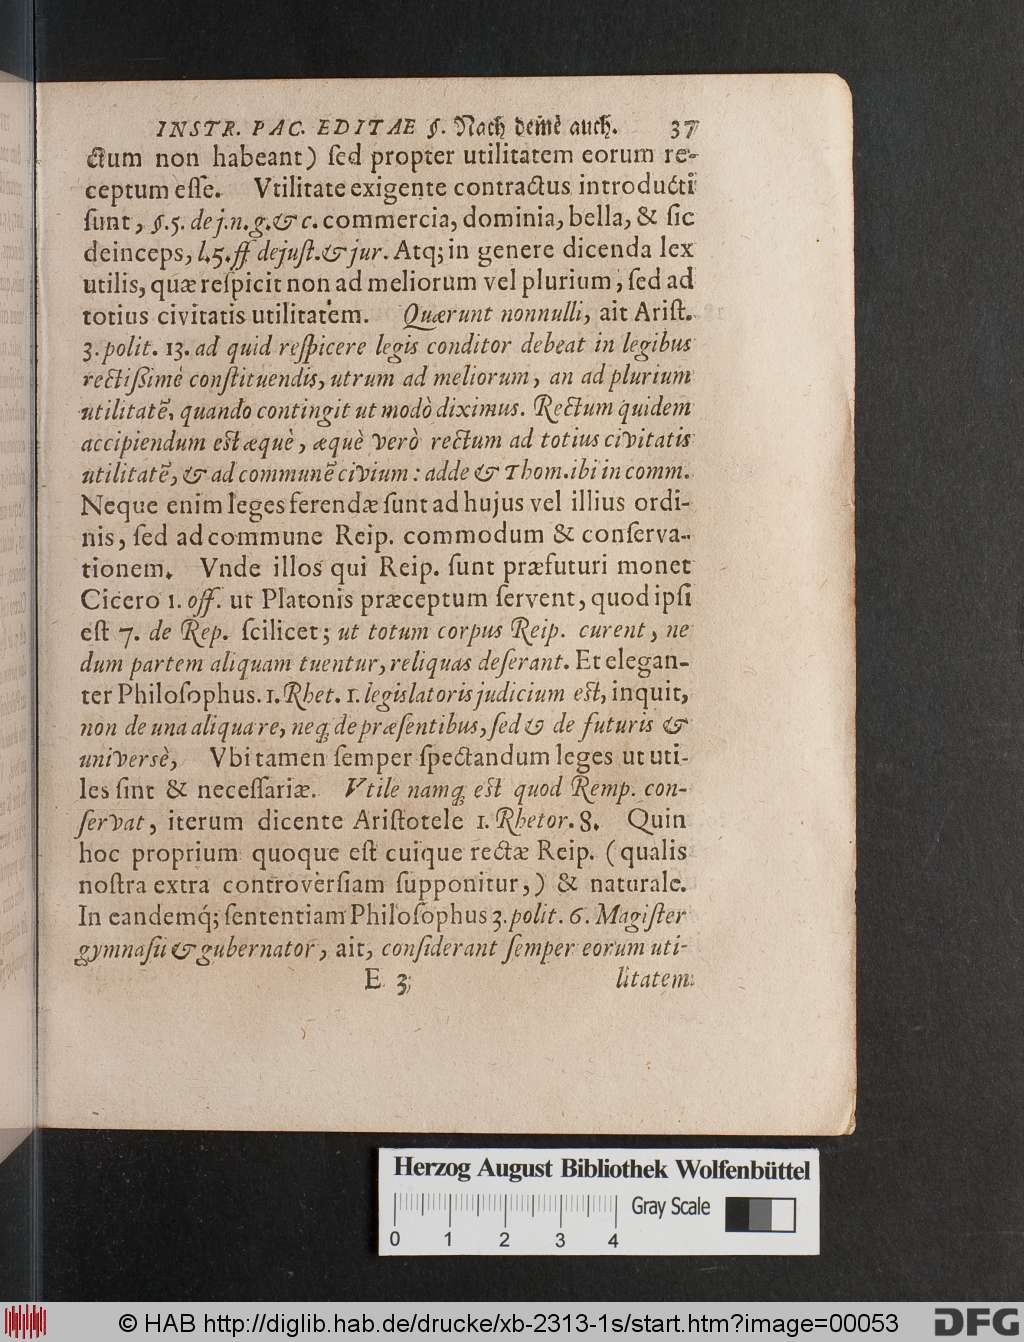 INSTR. PAC. EDITAE §. Nach dem̃e auch. 37
ctum non habeant) ſed propter utilitatem eorum re-
ceptum eſſe. Vtilitate exigente contractus introducti
ſunt, §.5. de j.n.g.& c. commercia, dominia, bella, & ſic
deinceps, l.5.ff dejuſt.& jur. Atq; in genere dicenda lex
utilis, quæ reſpicit non ad meliorum vel plurium, ſed ad
totius civitatis utilitatem. Quærunt nonnulli, ait Ariſt.
3. polit. 13. ad quid reſpicere legis conditor debeat in legibus
rectiſſimè conſtituendis, utrum ad meliorum, an ad plurium
utilitatẽ, quando contingit ut modò diximus. Rectum quidem
accipiendum eſt æquè, æquè verò rectum ad totius civitatis
utilitatẽ, & ad communẽ civium: adde & Thom. ibi in comm.
Neque enim leges ferendæ ſunt ad hujus vel illius ordi-
nis, ſed ad commune Reip. commodum & conſerva-
tionem. Vnde illos qui Reip. ſunt præfuturi monet
Cicero 1. off. ut Platonis præceptum ſervent, quod ipſi
eſt 7. de Rep. ſcilicet; ut totum corpus Reip. curent, ne
dum partem aliquam tuentur, reliquas deſerant. Et elegan-
ter Philoſophus. 1. Rhet. 1. legislatoris judicium eſt, inquit,
non de una aliqua re, neq; de præſentibus, ſed & de futuris &
univerſè, Vbi tamen ſemper ſpectandum leges ut uti-
les ſint & neceſſariæ. Vtile namq; eſt quod Remp. con-
ſervat, iterum dicente Ariſtotele 1. Rhetor. 8. Quin
hoc proprium quoque eſt cuique rectæ Reip. (qualis
noſtra extra controverſiam ſupponitur,) & naturale.
In eandemq́; ſententiam Philoſophus 3. polit. 6. Magiſter
gymnaſii & gubernator, ait, conſiderant ſemper eorum uti-
E 3 litatem
Herzog August Bibliothek Wolfenbüttel
Gray Scale
0 1 2 3 4
© HAB http://diglib.hab.de/drucke/xb-2313-1s/start.htm?image=00053
DFG